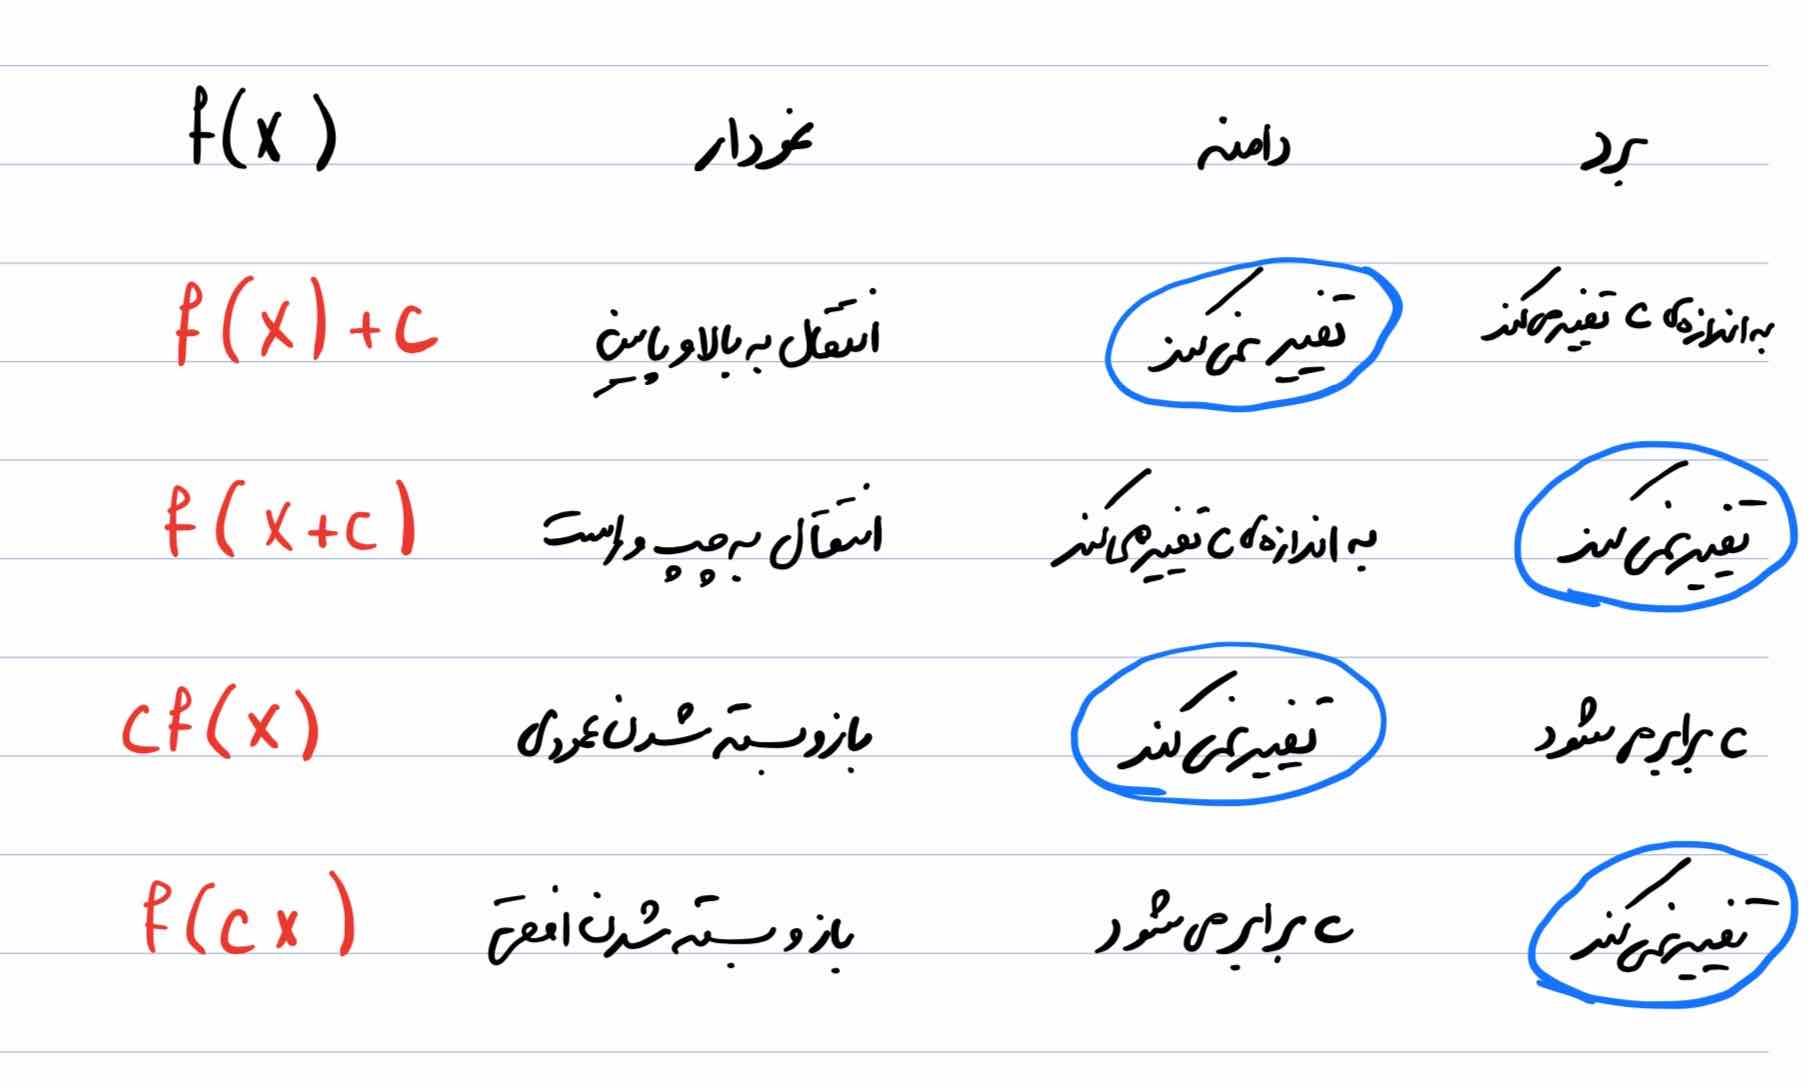 f(x) نمودار دامنه برد
f(x)+c انتقال به بالا و پایین تغییر نمی‌کند به اندازه‌ی c تغییر می‌کند
f(x+c) انتقال به چپ و راست به اندازه‌ی c تغییر می‌کند تغییر نمی‌کند
cf(x) باز و بسته شدن عمودی تغییر نمی‌کند c برابر می‌شود
f(cx) باز و بسته شدن افقی c برابر می‌شود تغییر نمی‌کند